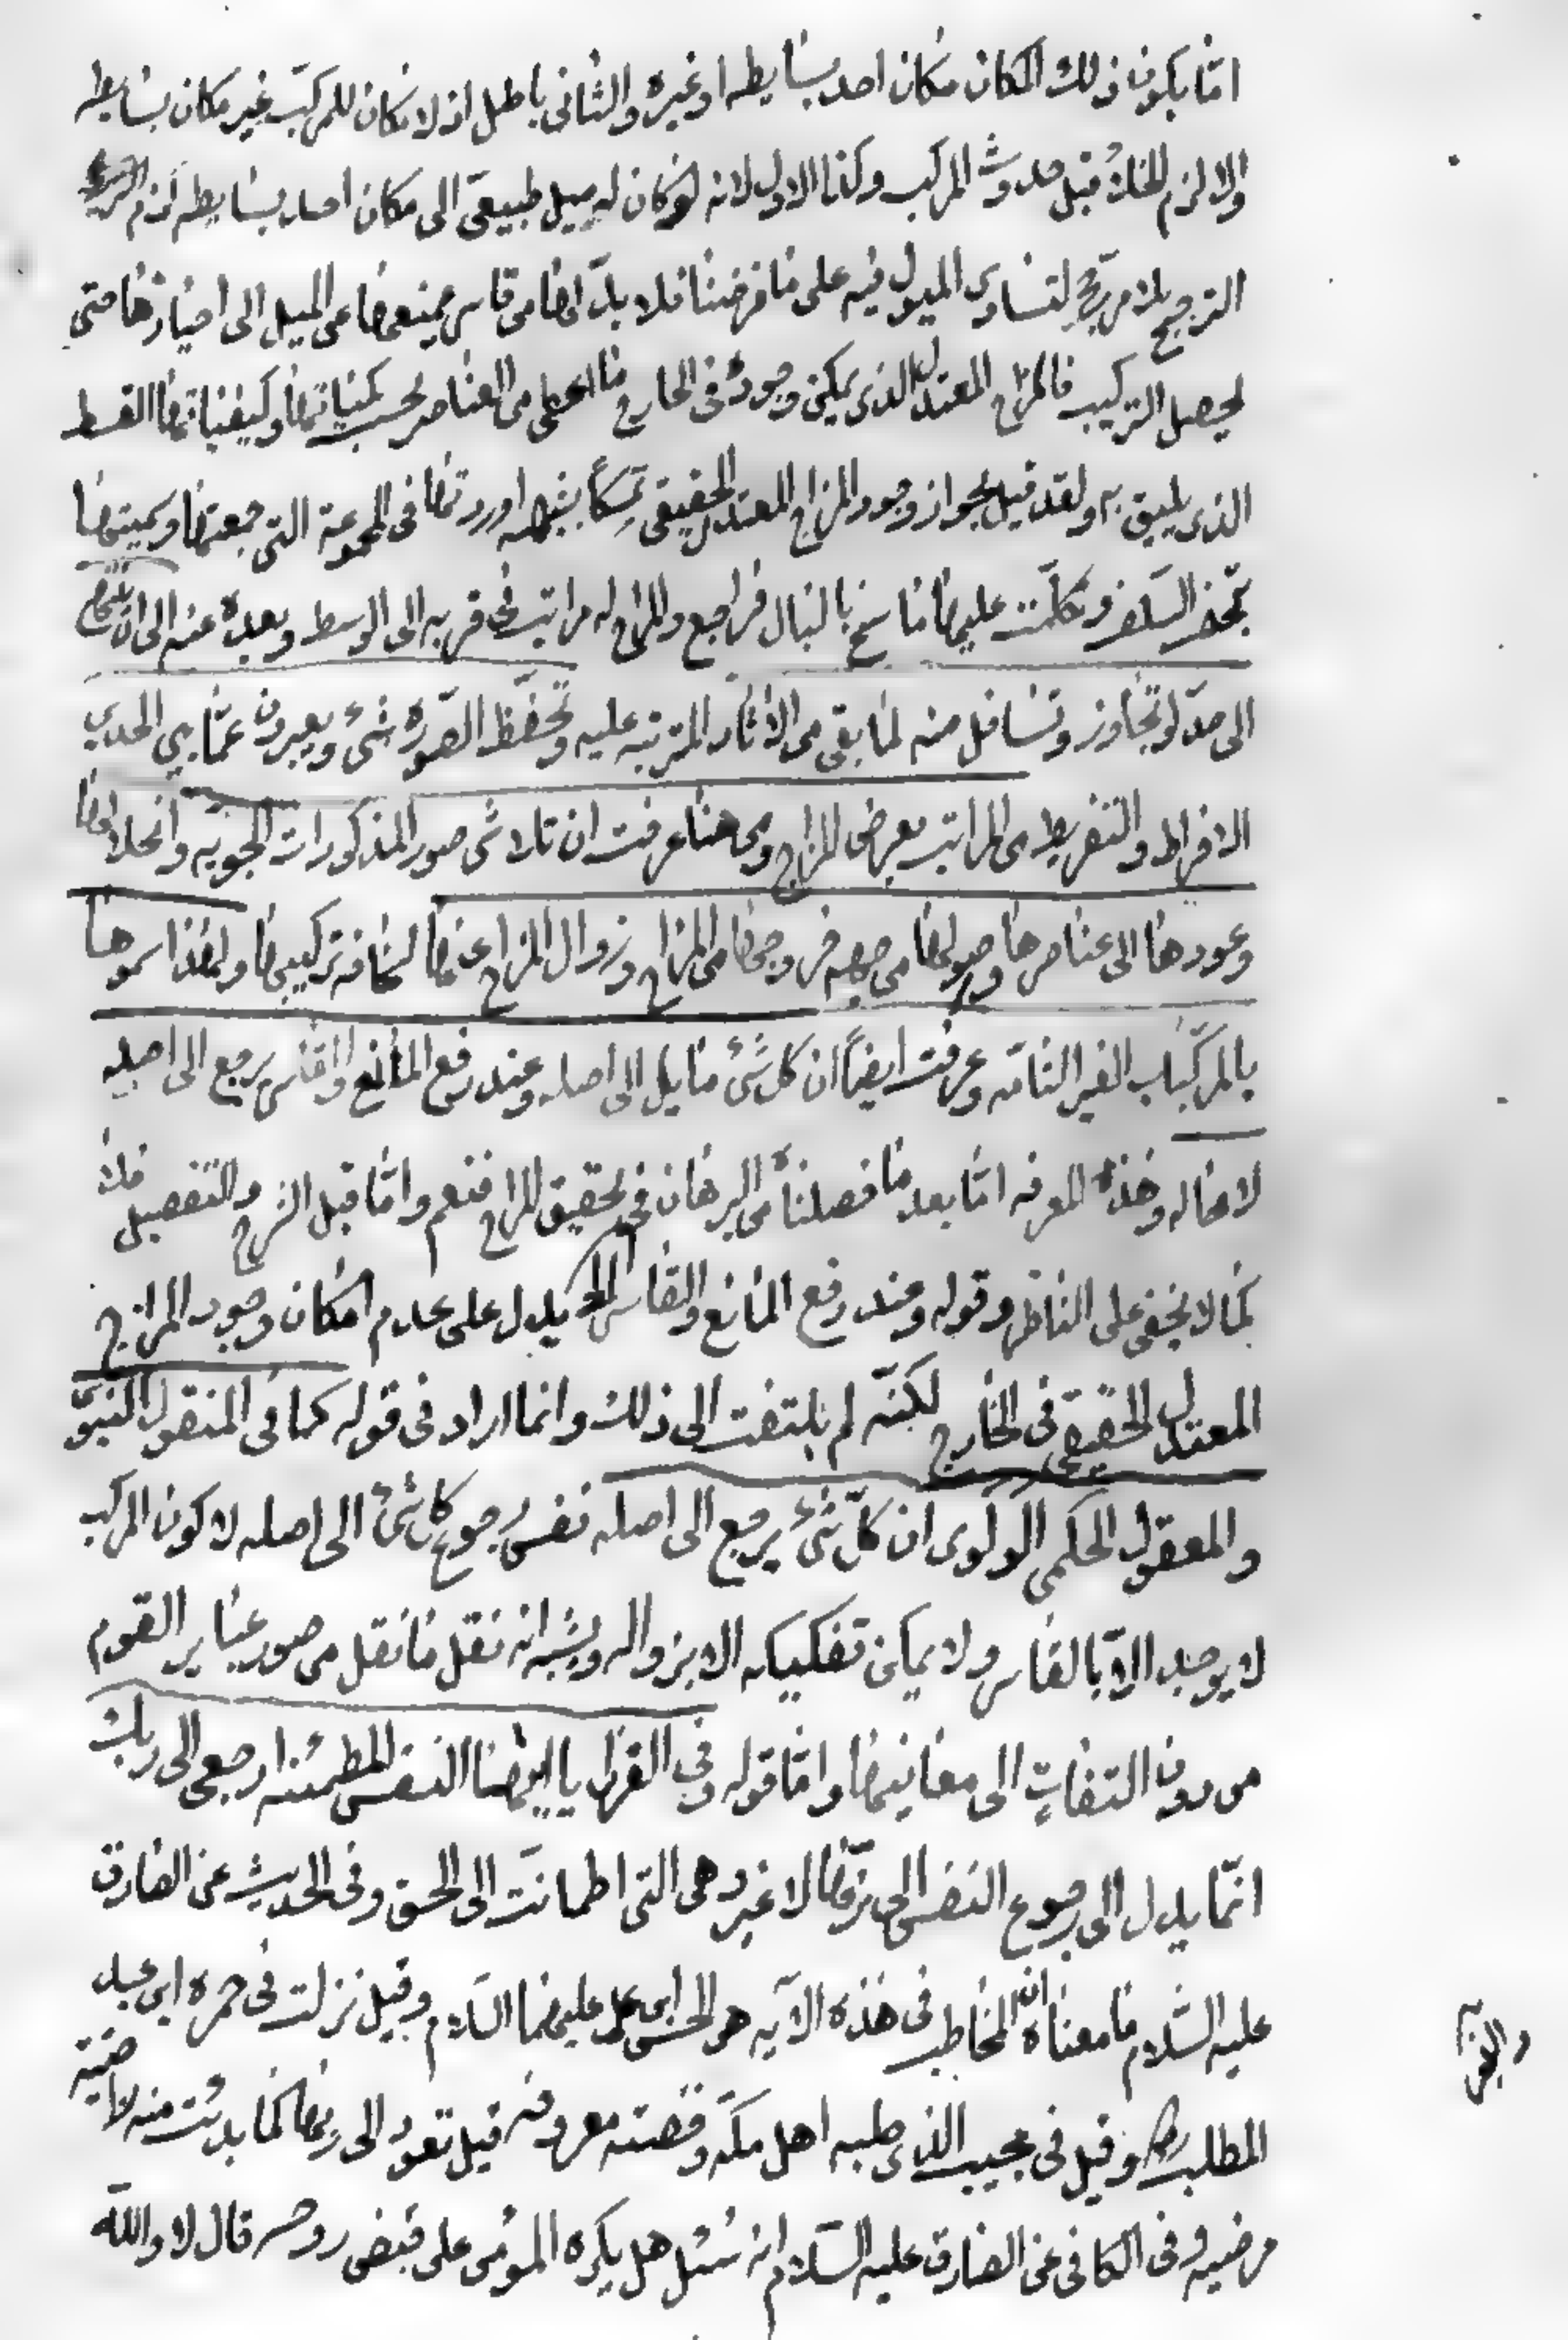 اما يكون ذلك المكان مكان احد بسايطه او غيره والثانى باطل اذ لا مكان للمركّب غير مكان بسايطه
والا لزم الخلاء قبل حدوث المركب وكذا الاول لانه لو كان له ميل طبيعىّ الى مكان احد بسايطه لزم
الترجيح بلا مرجّح لتساوى الميول فيه على ما فرضنا فلا بدّ لها من قاسر يمنعها عن الميل الى احيازها حتى
يحصل التركيب فالمزاج المعتدل الذى يمكن وجوده فى الخارج ما اعطى من العناصر بحسب كمياتها وكيفياتها القسط
الذى يليق به ولقد قيل بجواز وجود المزاج المعتدل الحقيقى تمسّكاً بشبهه اوردتها فى المجموعة التى جمعتها وسميتها
بتحفة السفر وتكلّمت عليها ما سنح بالبال فراجع وللمزاج له مراتب فى قربه الى الوسط وبعده عنه الى ان
الى حدّ لو تجاوز وتسافل منه لما بقى من الاثار المترتبه عليه وتحفّظ الصّورة شئ ويعبرون عمّا بين الحدين
الافراط والتفريط من المراتب بعرض المزاج ومن هنا عرفت ان تلاشى صور المذكورات الجويّه وانحلالها
وعودها الى عناصرها واصولها من جهه خروجها من المزاج وزوال المزاج عنها لسخافه تركيبها ولهذا سموها
بالمركّبات الغير التامّه وعرفت ايضاً ان كل شئ مايل الى اصله وعند رفع المانع والقاسر يرجع الى اصله
لا محاله وهذه المعرفه امّا بعد ما فصلناه من البرهان فى تحقيق المزاج فنعم وامّا قبل الشرح والتفصيل فلا
كما لا يخفى على الناظر وقوله وعند رفع المانع والقاسر الخ يدل على عدم امكان وجود المزاج
المعتدل الحقيقى فى الخارج لكنّه لم يلتفت الى ذلك وانما اراد فى قوله كما فى المنقول النبوىّ
والمعقول الحكمى الولوى ان كلّ شئ يرجع الى اصله نفس رجوع كل شئ الى اصله لا كون المركب
لا يوجد الاّ بالقاسر ولا يمكن تفكيكه الا بزواله ويشبه انه نقل ما نقل من صور عباير القوم
من دون التفاتٍ الى معانيها وامّا قوله وفى القران يا ايتها النفس المطمئنه ارجعى الى ربك
انّما يدل الى رجوع النفس الى ربّها لا غير وهى التى اطمانت الى الحق وفى الحديث عن الصادق
عليه السّلام ما معناه ان المخاطب فى هذه الآيه هو الحسين بن على عليهما السّلام وقيل نزلت فى حمزه ابن عبد
المطلب وقيل فى خبيب الذى صلبه اهل مكّه وقصته معروفه قيل تعود الى ربها كما بدئت منه راضية
مرضيه وفى الكافى عن الصادق عليه السّلام انه سُئل هل يكره المؤمن على قبض روحه قال لا والله